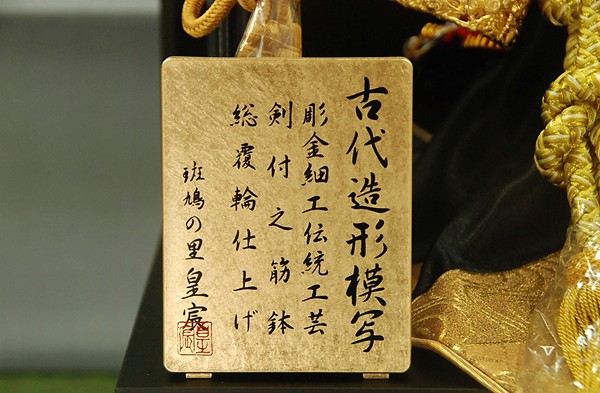 古代造形模写
彫金細工伝統工芸
剣付之筋鉢
総覆輪仕上げ
斑鳩の里皇宸